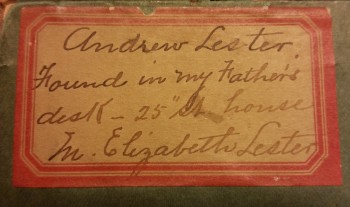 Andrew Lester.
Found in my Father's
desk - 25" st. house
M. Elizabeth Lester